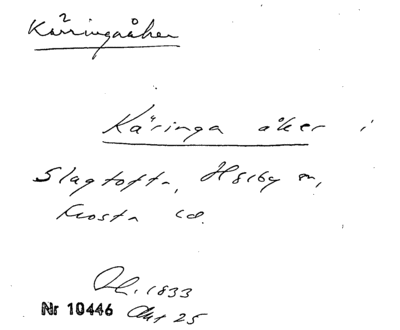 Käringaåker
Käringa åker i
Slagtofta, Hörby sn,
Frosta hd.
1833
Nr 10446 Akt 25